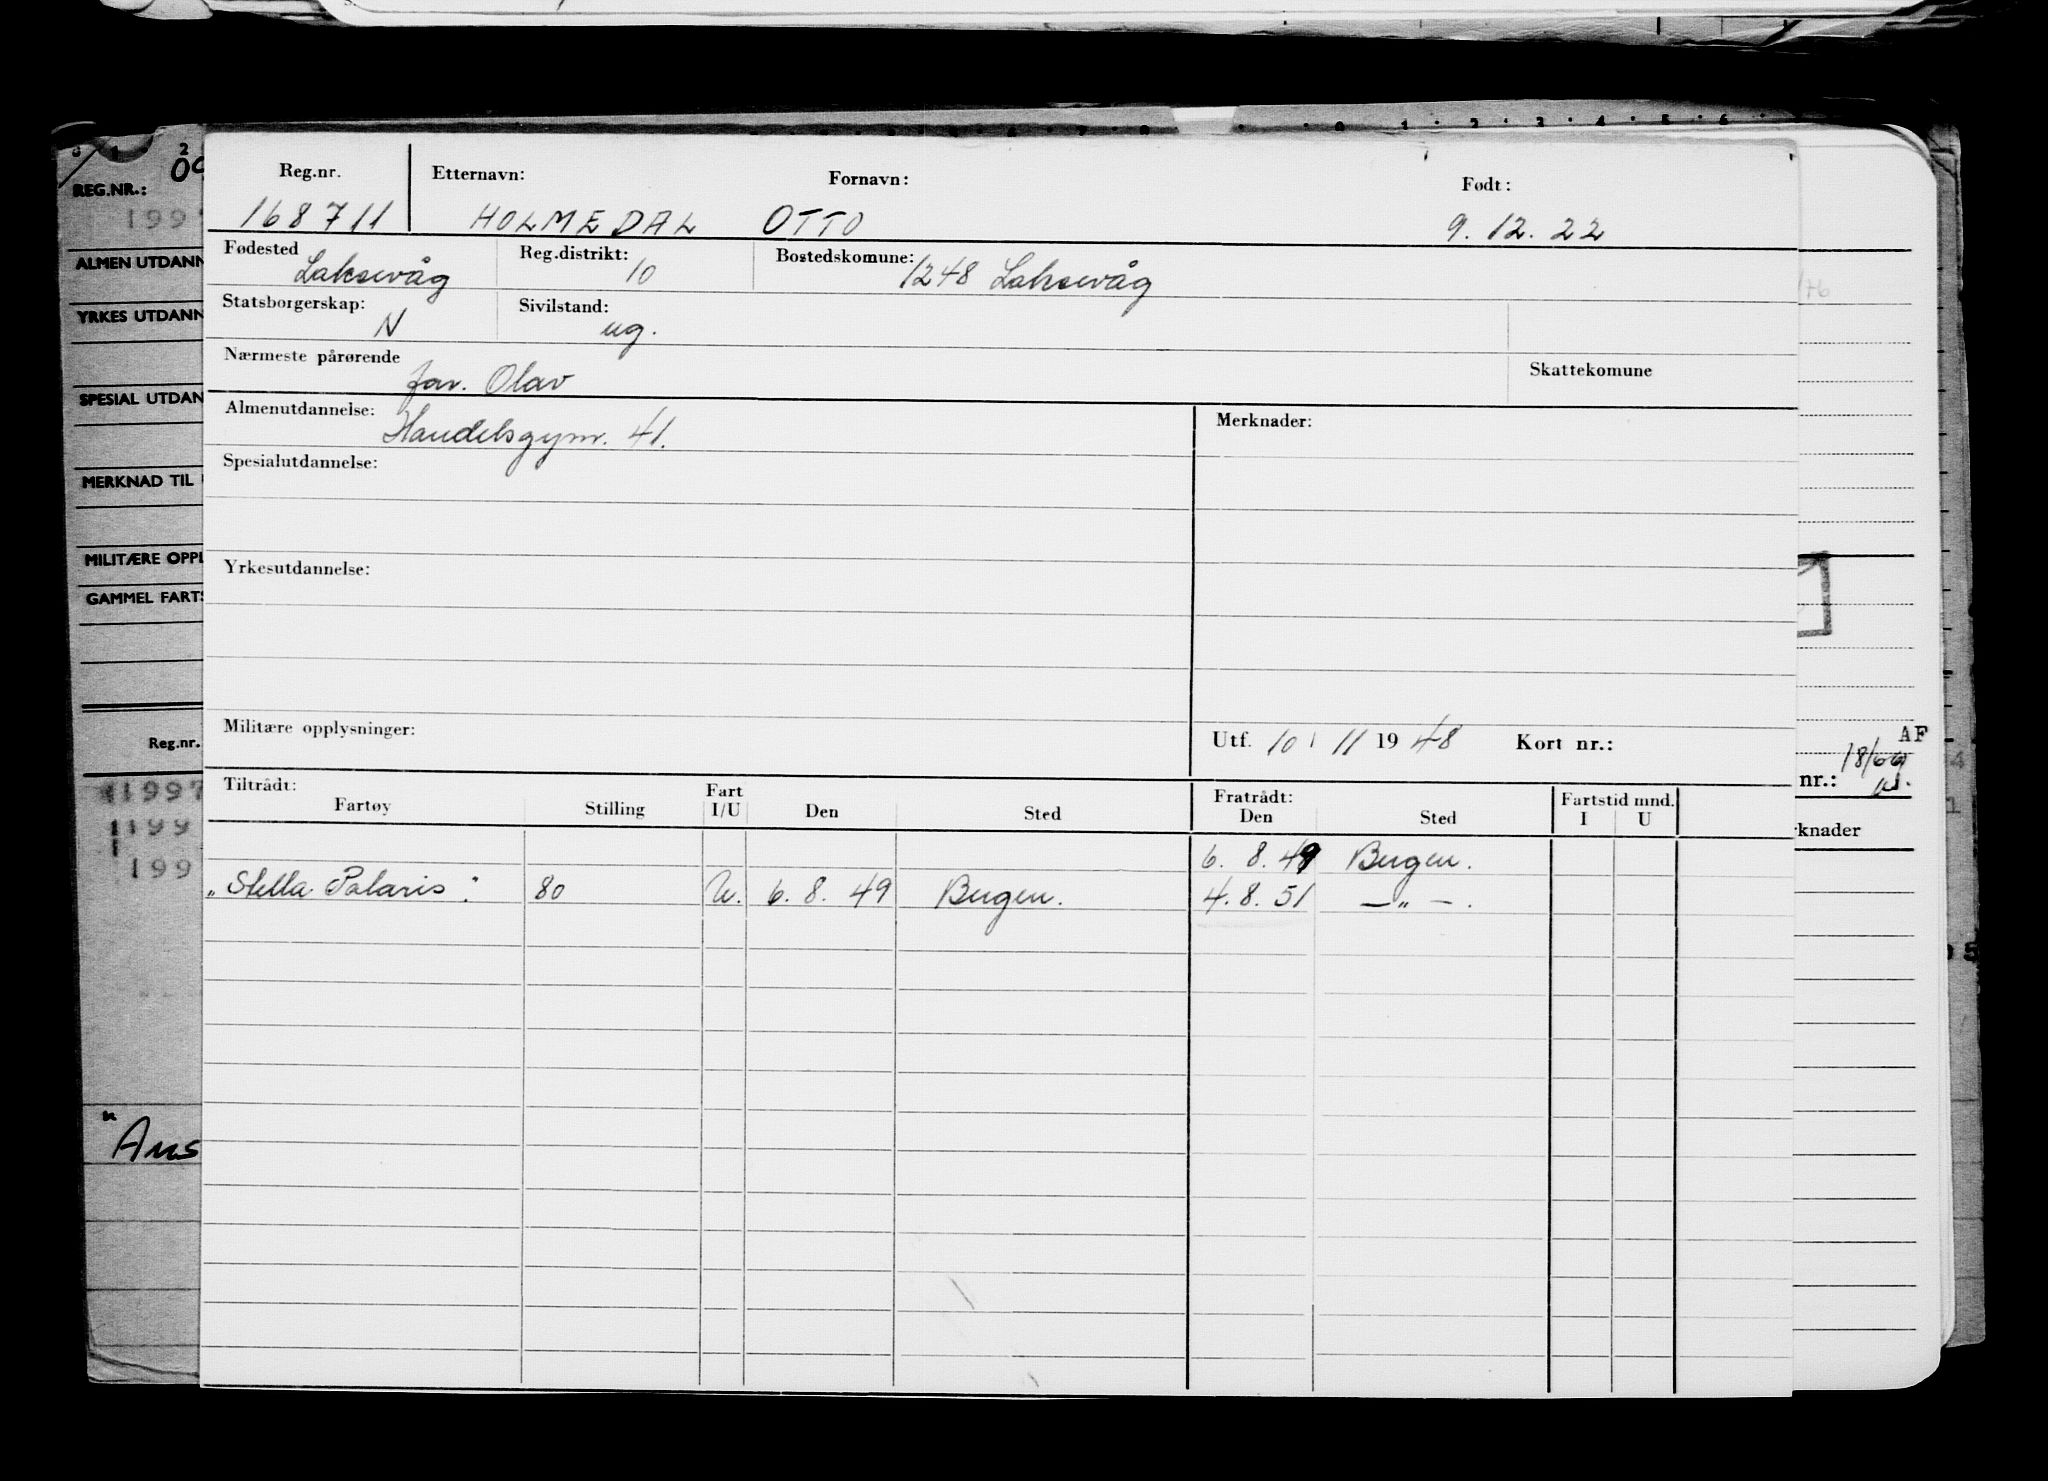 REG.NR.:
1997
ALMEN UTDANN
YRKES UTDANN
SPESIAL UTDAN
MERKNAD TIL
MILITÆRE OPPL
GAMMEL FARTS
Reg.nr.
1997
199
199
Ans
Reg.nr. Etternavn: Fornavn: Født:
168711 HOLMEDAL OTTO 9.12.22
Fødested Reg.distrikt: Bostedskomune:
Laksevåg 10 1248 Laksevåg
Statsborgerskap: Sivilstand:
N ug.
Nærmeste pårørende Skattekomune
far. Olav
Almenutdannelse: Merknader:
Handelsgymn. 41.
Spesialutdannelse:
Yrkesutdannelse:
Militære opplysninger: Utf. 10 / 11 19 48 Kort nr.:
Tiltrådt: Fratrådt: Fartstid mnd.
Fartøy Stilling Fart I/U Den Sted Den Sted I U
6. 8. 49 Bergen.
"Stella Polaris". 80 U. 6. 8. 49 Bergen. 4. 8. 51 — " —.
AF
nr.: 18/66
knader